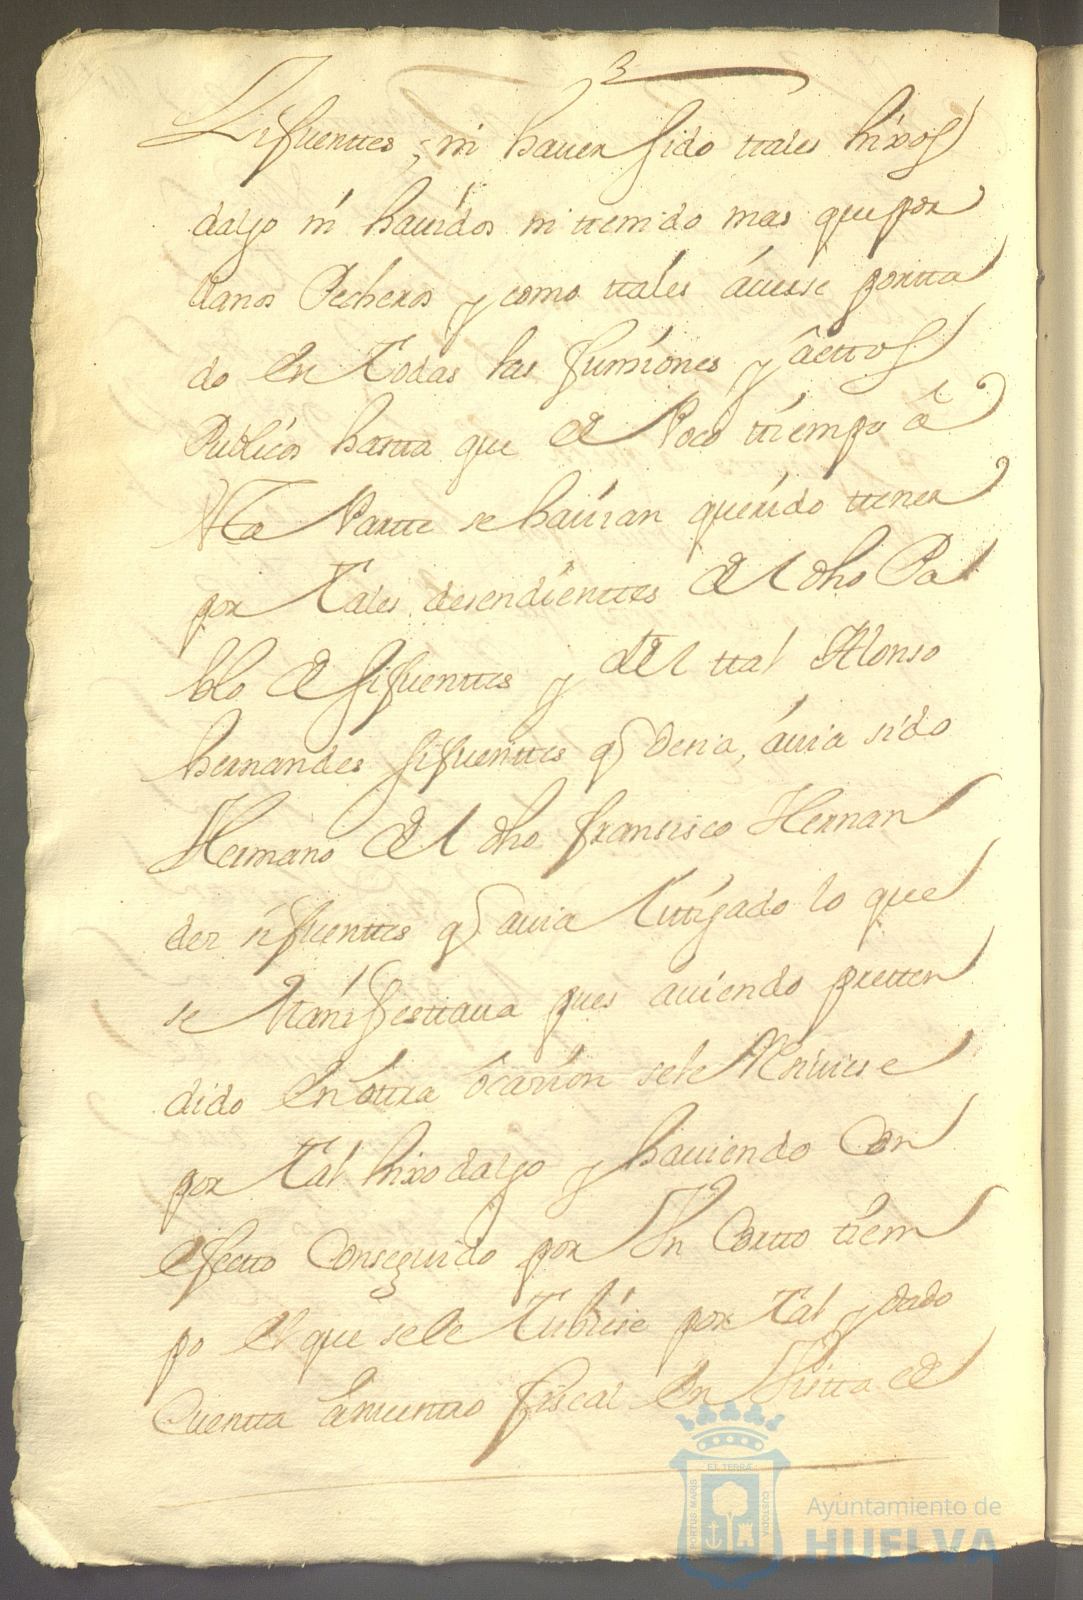 3
Sifuenttes, ni haver sido ttales hixos
dalgo ni havidos ni ttenido mas que por
llanos Pecheros y como ttales averse portta
do En Todas las funsiones y acttos
Publicos hasta que de Poco ttiempo â
esta Partte se havian querido ttener
por Tales desendienttes del dho Pa
blo de Sifuenttes y del ttal Alonso
hernandes Sifuenttes q desia, avia sido
Hermano del dho fransisco Hernan
dez sifuenttes q avia Littigado lo que
se Manifesttava pues aviendo pretten
dido En ottra ocasion se le Resiviese
por Tal hixodalgo y haviendo Con
efectto Conseguido por Un Cortto tiem
po el que se le Tubiese por Tal y dado
Cuentta a nuestro fiscal En Vistta de
ET TERRÆ
PORTUS MARIS
CUSTODIA
Ayuntamiento de
HUELVA